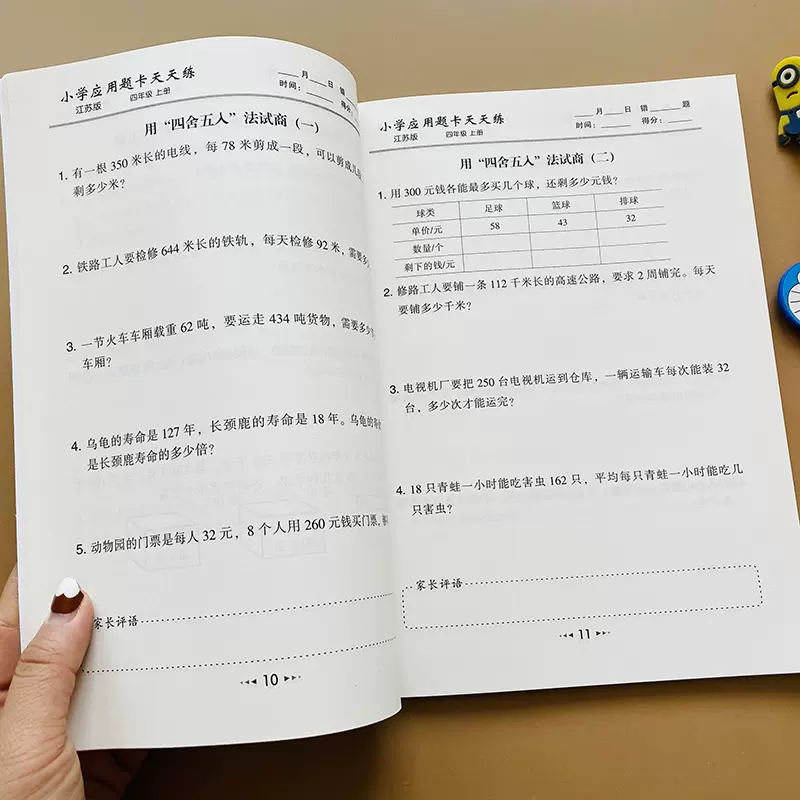 小学应用题卡天天练
江苏版 四年级 上册
____月____日 错
时间：______ 得分
用“四舍五入”法试商（一）
1. 有一根 350 米长的电线，每 78 米剪成一段，可以剪成几段
剩多少米？
2. 铁路工人要检修 644 米长的铁轨，每天检修 92 米，需要多
3. 一节火车车厢载重 62 吨，要运走 434 吨货物，需要多少节
车厢？
4. 乌龟的寿命是 127 年，长颈鹿的寿命是 18 年。乌龟的寿命
是长颈鹿寿命的多少倍？
5. 动物园的门票是每人 32 元，8 个人用 260 元钱买门票，
家长评语
10
小学应用题卡天天练
江苏版 四年级 上册
____月____日 错____题
时间：______ 得分：____
用“四舍五入”法试商（二）
1. 用 300 元钱各能最多买几个球，还剩多少元钱？
球类 足球 篮球 排球
单价/元 58 43 32
数量/个
剩下的钱/元
2. 修路工人要铺一条 112 千米长的高速公路，要求 2 周铺完。每天
要铺多少千米？
3. 电视机厂要把 250 台电视机运到仓库，一辆运输车每次能装 32
台，多少次才能运完？
4. 18 只青蛙一小时能吃害虫 162 只，平均每只青蛙一小时能吃几
只害虫？
家长评语
11